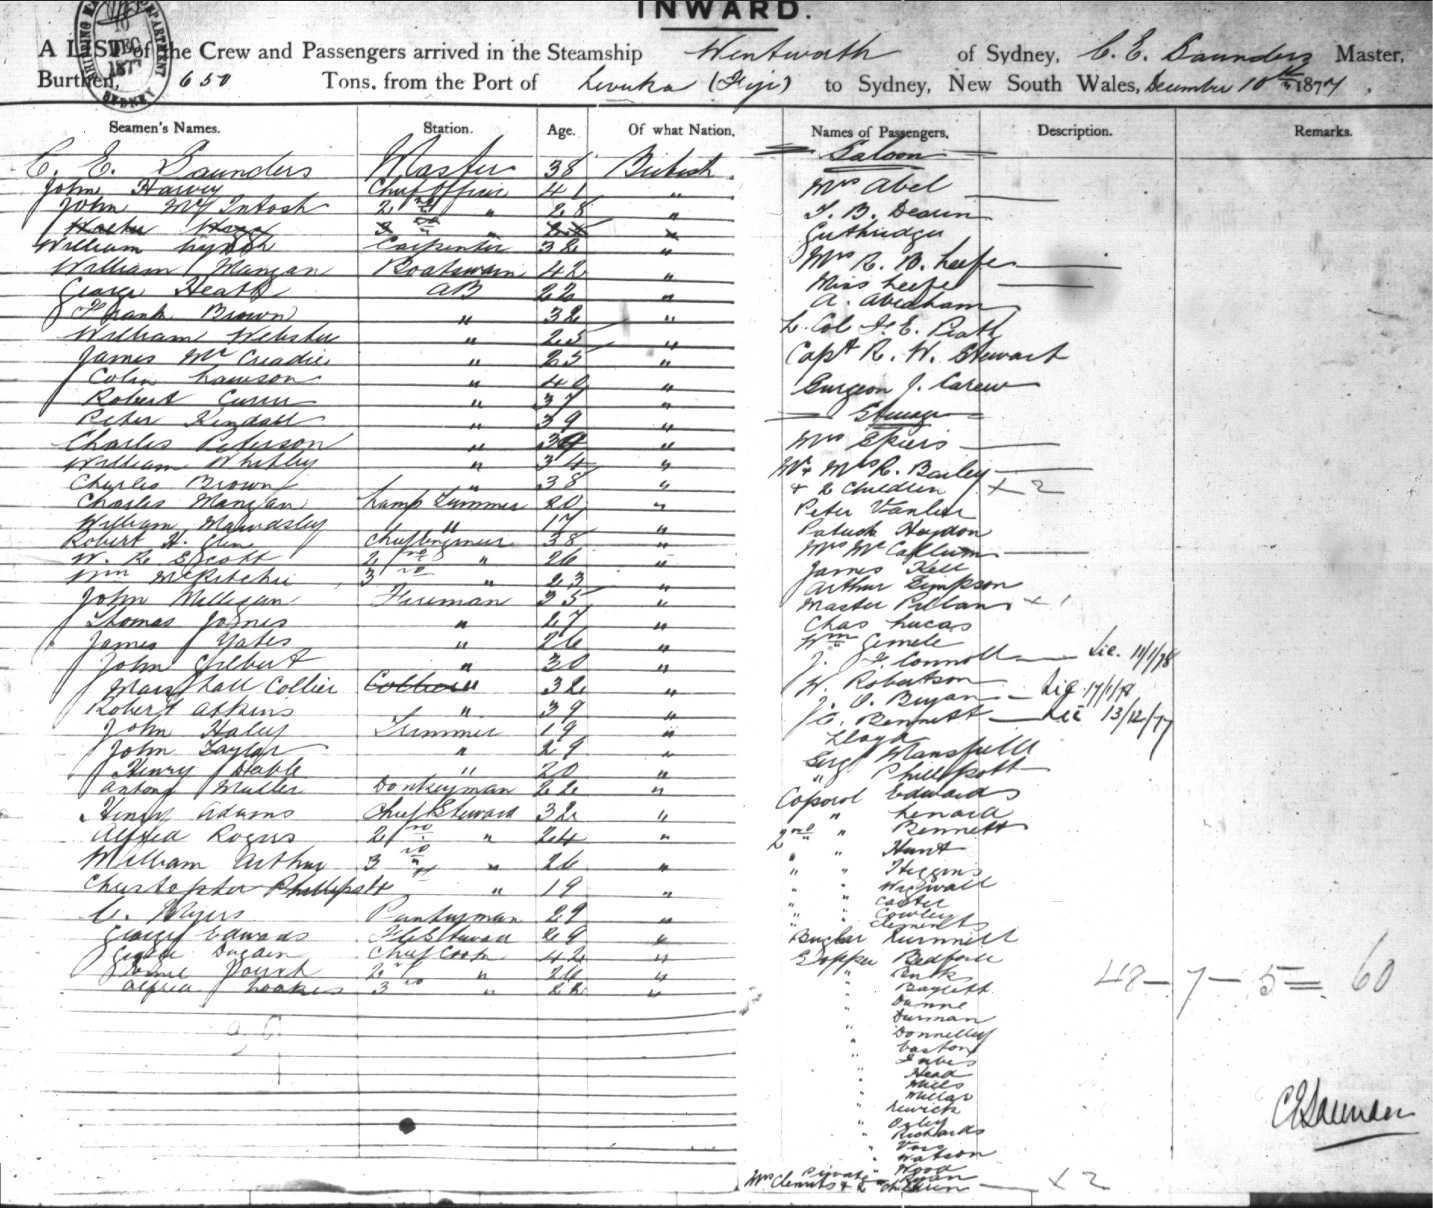 INWARD.
10 DEC 1877
SYDNEY
A LIST of the Crew and Passengers arrived in the Steamship Wentworth of Sydney, C. E. Saunders Master,
Burthen, 650 Tons, from the Port of Levuka (Fiji) to Sydney, New South Wales, December 10th 1877.
Seamen's Names. Station. Age. Of what Nation.
C. E. Saunders Master 38 British
John Harvey Chief Officer 41 "
John McIntosh 2nd " 28 "
William Carpenter 32 "
William Mangan Boatswain 42 "
George Heath AB 22 "
Frank Brown " 32 "
William Webster " 25 "
James McCreadie " 25 "
Colin Lawson " 40 "
Robert " 37 "
Peter Kendall " 39 "
Charles Peterson " "
William Whitley " 34 "
Charles Brown " 38 "
Charles Mangan Lamp Trimmer 20 "
William Maundsley " 17 "
Robert H. Glen Chief Engineer 38 "
W. R. Scott 2nd " 26 "
Wm McRitchie 3rd " 23 "
John Milligan Fireman 35 "
Thomas " 27 "
James Yates " 26 "
John Gilbert " 30 "
Marshall Collier " 32 "
Robert Atkins " 39 "
John Haley Trimmer 19 "
John Taylor " 29 "
Henry " 20 "
Antony Muller Donkeyman 22 "
Henry Adams Chief Steward 32 "
Alfred Rogers 2nd " 24 "
William Arthur 3rd " 26 "
Christopher Phillipstt " 19 "
C. Myers Pantryman 29 "
George Edwards Steward 29 "
Chief Cook 42 "
2nd " 26 "
Alfred 3rd " 22 "
Names of Passengers. Description. Remarks.
Saloon
Mrs Abel
Guthridge
Mrs R. B. Leefe
Miss Leefe
A. Abraham
L. Col
Capt R. W. Stewart
Surgeon J. Carew
Steerage
Mrs Spiers
Mr & Mrs R. Bailey
& 2 Children × 2
Peter
Patrick Haydon
Mrs McCallum
James Kell
Arthur Simpson
Master × 1
Chas Lucas
Wm
J. F. Connoll Lic. 11/1/78
W. Robertson
J. O. Bryan Lic 17/1/78
J. C. Bennett Lic 13/12/77
Lloyd
Sergt Mansfield
" Phillpott
Coporol Edwards
" Lenard
2nd " Bennett
" " Hunt
" " Higgins
" " Wignall
" " Carter
" " Cowley
" " Clements
Bugler
Sapper Bedford
"
" Baylett
" Dunne
" Durman
" Donnelly
" Easton
"
" Head
" Mills
" Millar
"
" Oxley
" Richards
"
" Watson
" Wood
Private
Mrs Clements & 2 Children × 2
48 – 7 – 5 = 60
C E Saunders